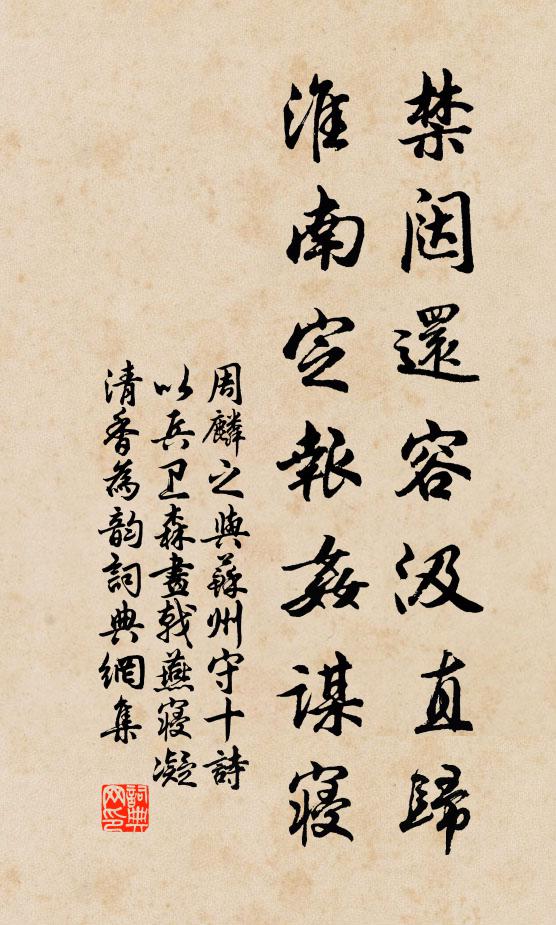 禁闼還容汲直歸
淮南定報姦謀寝
周麟之與蘇州守十詩
以兵卫森畫戟燕寝凝
清香為韵詞典網集
詞典网印